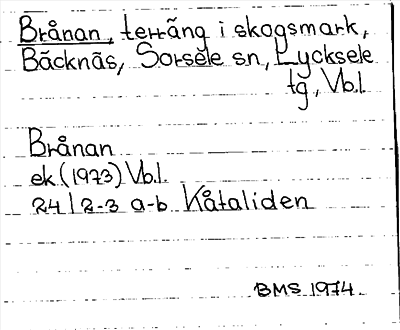 Brånan, terräng i skogsmark,
Bäcknäs, Sorsele sn, Lycksele
tg, Vb.l.
Brånan
ek (1973) Vb.l.
24 I 2-3 a-b Kåtaliden
BMS 1974